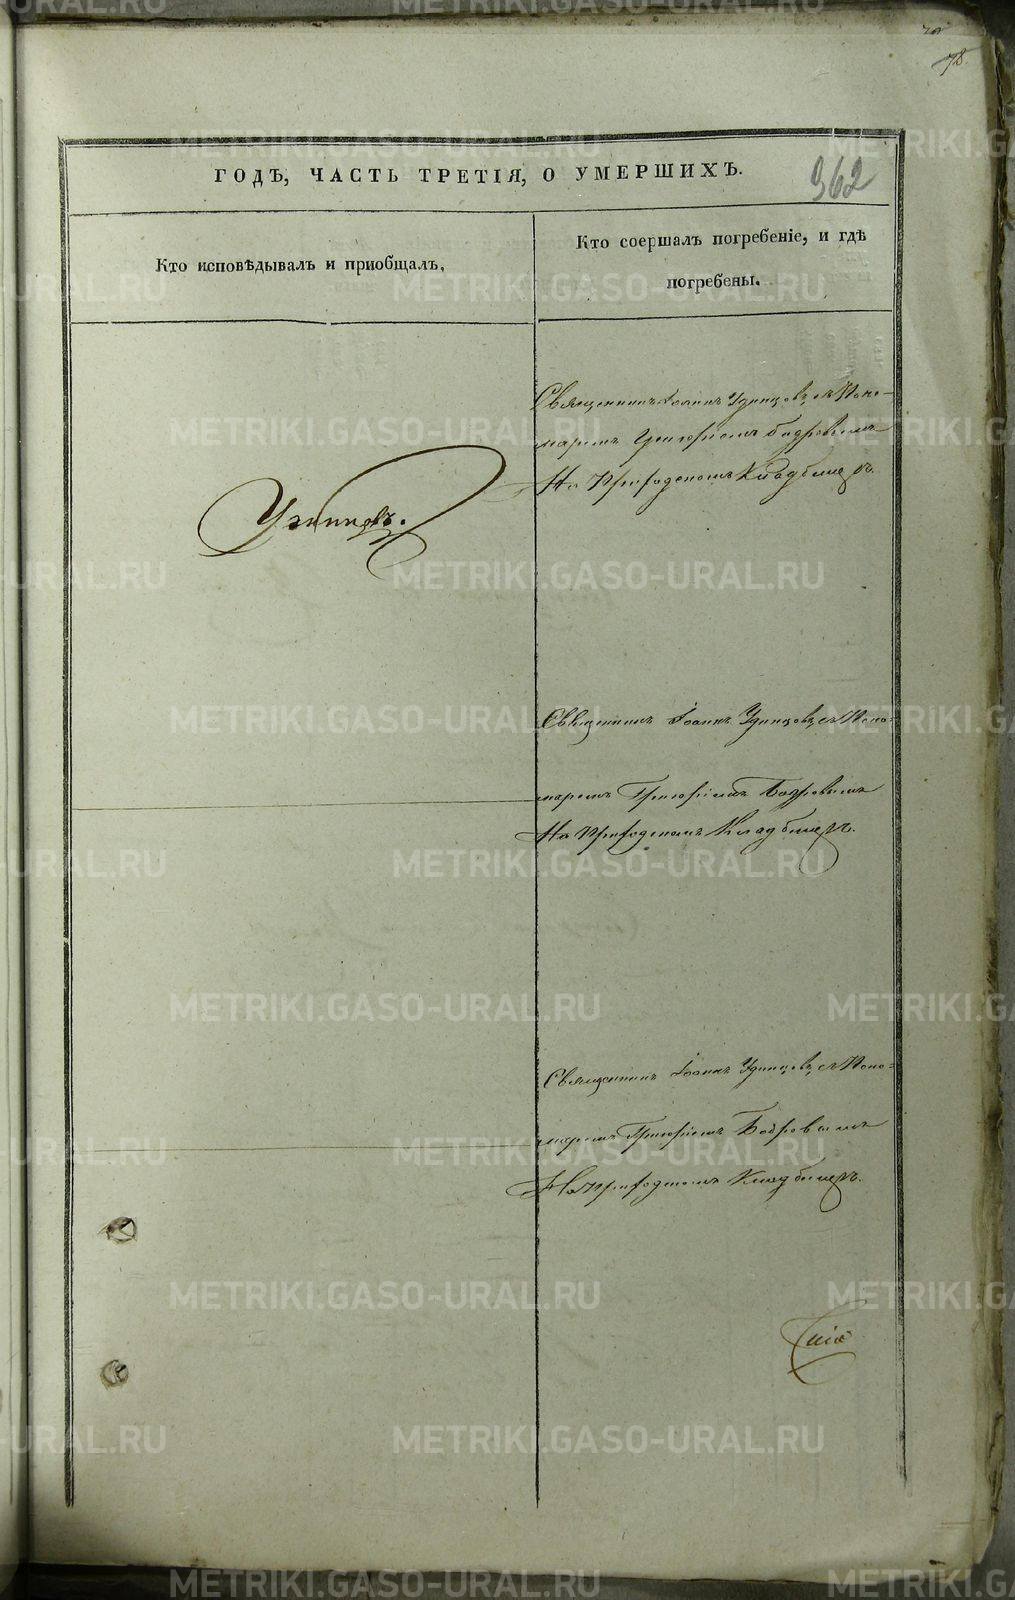 78.
ГОДЪ, ЧАСТЬ ТРЕТІЯ, О УМЕРШИХЪ.
362
Кто исповѣдывалъ и приобщалъ,
Кто соершалъ погребеніе, и гдѣ
погребены.
Священникъ Іоаннъ Удинцовъ, съ Поно-
маремъ Григоріемъ Бобровымъ
На Приходскомъ Кладбищѣ.
Удинцовъ.
Священникъ Іоаннъ Удинцовъ, съ Поно-
маремъ Григоріемъ Бобровымъ
На Приходскомъ Кладбищѣ.
Священникъ Іоаннъ Удинцовъ, съ Поно-
маремъ Григоріемъ Бобровымъ
На Приходскомъ Кладбищѣ.
METRIKI.GASO-URAL.RU